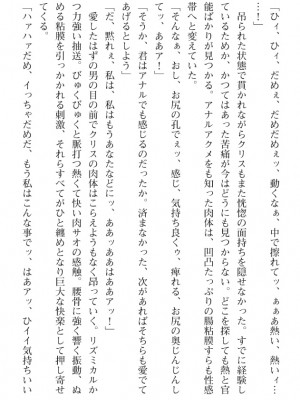 「ひィ、ひィ、だめぇ、だめえッ、動くなぁ、中で擦れてッ、ぁぁぁ熱い、熱いィ…
…！」
吊られた状態で貫かれながらクリスもまた恍惚の面持ちを隠せなかった。すでに経験し
ているためか、かつてはあった苦痛が今はどうにも見つからない。どこを探しても熱と官
能ばかりが見つかる。アナルアクメをも知った肉体は、凹凸たっぷりの腸粘膜すらも性感
帯へと変えていた。
「そんなぁ、おし、お尻の孔でぇッ、感じ、気持ち良くゥ、痺れる、お尻の奥じんじんし
てッ、ああァ！」
「そうか、君はアナルでも感じるのだったか。済まなかった、次があればそちらも愛でて
あげるとしよう」
「だ、黙れぇ、私は、私はもうあなたなどにッ、あぁッああはああァー！」
愛したはずの男の目の前でクリスの肉体はこらえようもなく昂っていく。リズミカルか
つ力強い抽送。びゅくびゅくと脈打つ熱くて快い肉サオの感触。腰骨に強く響く振動、ぬ
める粘膜を引っかかれる刺激、それらすべてがひと纏めとなり巨大な快楽として押し寄せ
てくる。
「ハァハァだめ、イっちゃだめだ、もう私はこんな事でッ、はあアッ、ひィイ気持ちいい